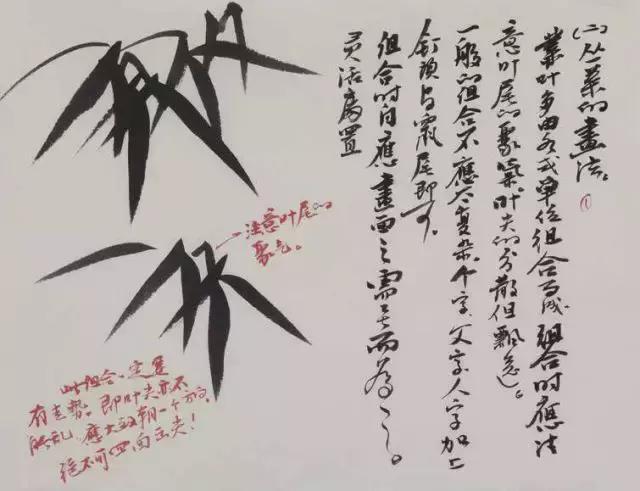 (二)丛叶的画法。
①
丛叶多由各式单位组合而成,组合时应注
意叶尾的聚气,叶尖的分散但飘逸。
一般的组合不应太复杂,个字、父字、人字加上
钉头与鼠尾即可。
组合时自应画面之需要而为之。
灵活处置
一注意叶尾的
聚气。
此组合,定要
有走势。即叶尖亦不
能乱,应大致朝一个方向,
绝不可四面出尖!